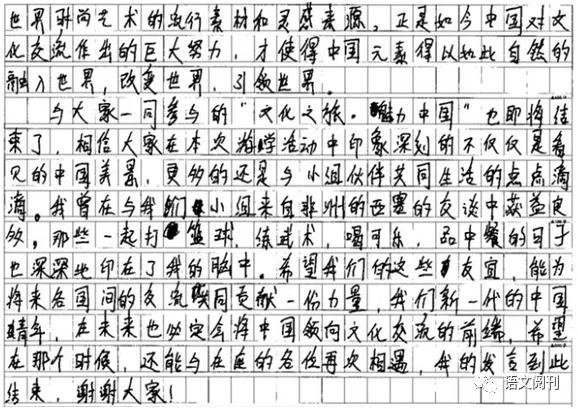 世界时尚艺术的流行素材和灵感来源。正是如今中国对文
化交流作出的巨大努力，才使得中国元素得以如此自然的
融入世界，改变世界，引领世界。
与大家一同参与的“文化之旅。魅力中国”也即将结
束了，相信大家在本次游学活动中印象深刻的不仅仅是看
见的中国美景，更多的还是与小组伙伴共同生活的点点滴
滴。我曾在与我们小组来自非洲的西墨的交谈中获益良
多，那些一起打篮球，练武术，喝可乐，品中餐的日子
也深深地印在了我的脑中。希望我们的这些友宜，能为
将来各国间的交流共同贡献一份力量，我们新一代的中国
青年，在未来也必定会将中国领向文化交流的前端，希望
在那个时候，还能与在座的各位再次相遇，我的发言到此
结束，谢谢大家！
语文阅刊